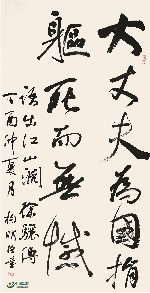 大丈夫為國捐
軀死而無憾
語出江山瀾徐驟傳
丁酉仲夏月